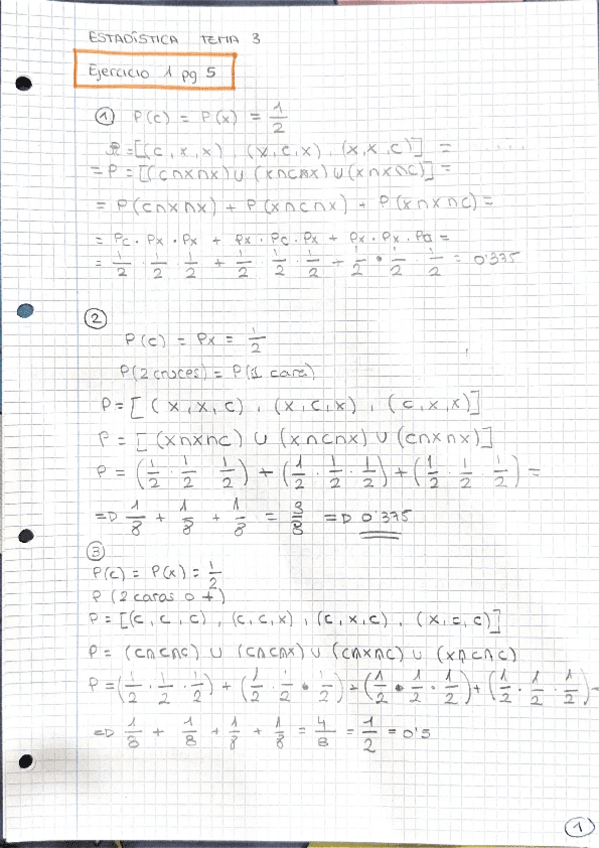 ESTADÍSTICA TEMA 3
Ejercicio 1 pg 5
① P(c) = P(x) = 1/2
P=[(c, x, x), (x, c, x), (x, x, c)] =
= P = [(c∩x∩x) ∪ (x∩c∩x) ∪ (x∩x∩c)] =
= P(c∩x∩x) + P(x∩c∩x) + P(x∩x∩c) =
= Pc · Px · Px + Px · Pc · Px + Px · Px · Pc =
= 1/2 · 1/2 · 1/2 + 1/2 · 1/2 · 1/2 + 1/2 · 1/2 · 1/2 = 0'375
②
P(c) = Px = 1/2
P(2 cruces) = P(1 cara)
P = [(x, x, c), (x, c, x), (c, x, x)]
P = [(x∩x∩c) ∪ (x∩c∩x) ∪ (c∩x∩x)]
P = (1/2 · 1/2 1/2) + (1/2 · 1/2 · 1/2) + (1/2 · 1/2 · 1/2) =
=D 1/8 + 1/8 + 1/8 = 3/8 =D 0'375
③
P(c) = P(x) = 1/2
P (2 caras o +)
P = [(c, c, c), (c, c, x), (c, x, c), (x, c, c)]
P = (c∩c∩c) ∪ (c∩c∩x) ∪ (c∩x∩c) ∪ (x∩c∩c)
P = (1/2 · 1/2 · 1/2) + (1/2 · 1/2 · 1/2) + (1/2 · 1/2 · 1/2) + (1/2 · 1/2 · 1/2) =
=D 1/8 + 1/8 + 1/8 + 1/8 = 4/8 = 1/2 = 0'5
①